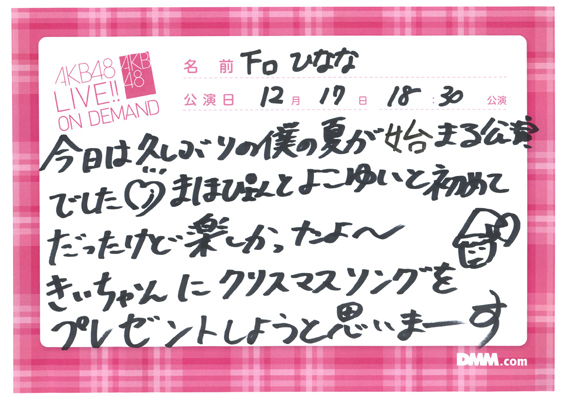 AKB48
LIVE!!
ON DEMAND
AKB
48
名前 下口ひなな
公演日 12月17日 18:30 公演
今日は久しぶりの僕の夏が始まる公演
でした♡まほぴょんとよこゆいと初めて
だったけど楽しかったよ〜
きぃちゃんにクリスマスソングを
プレゼントしようと思いまーす
DMM.com